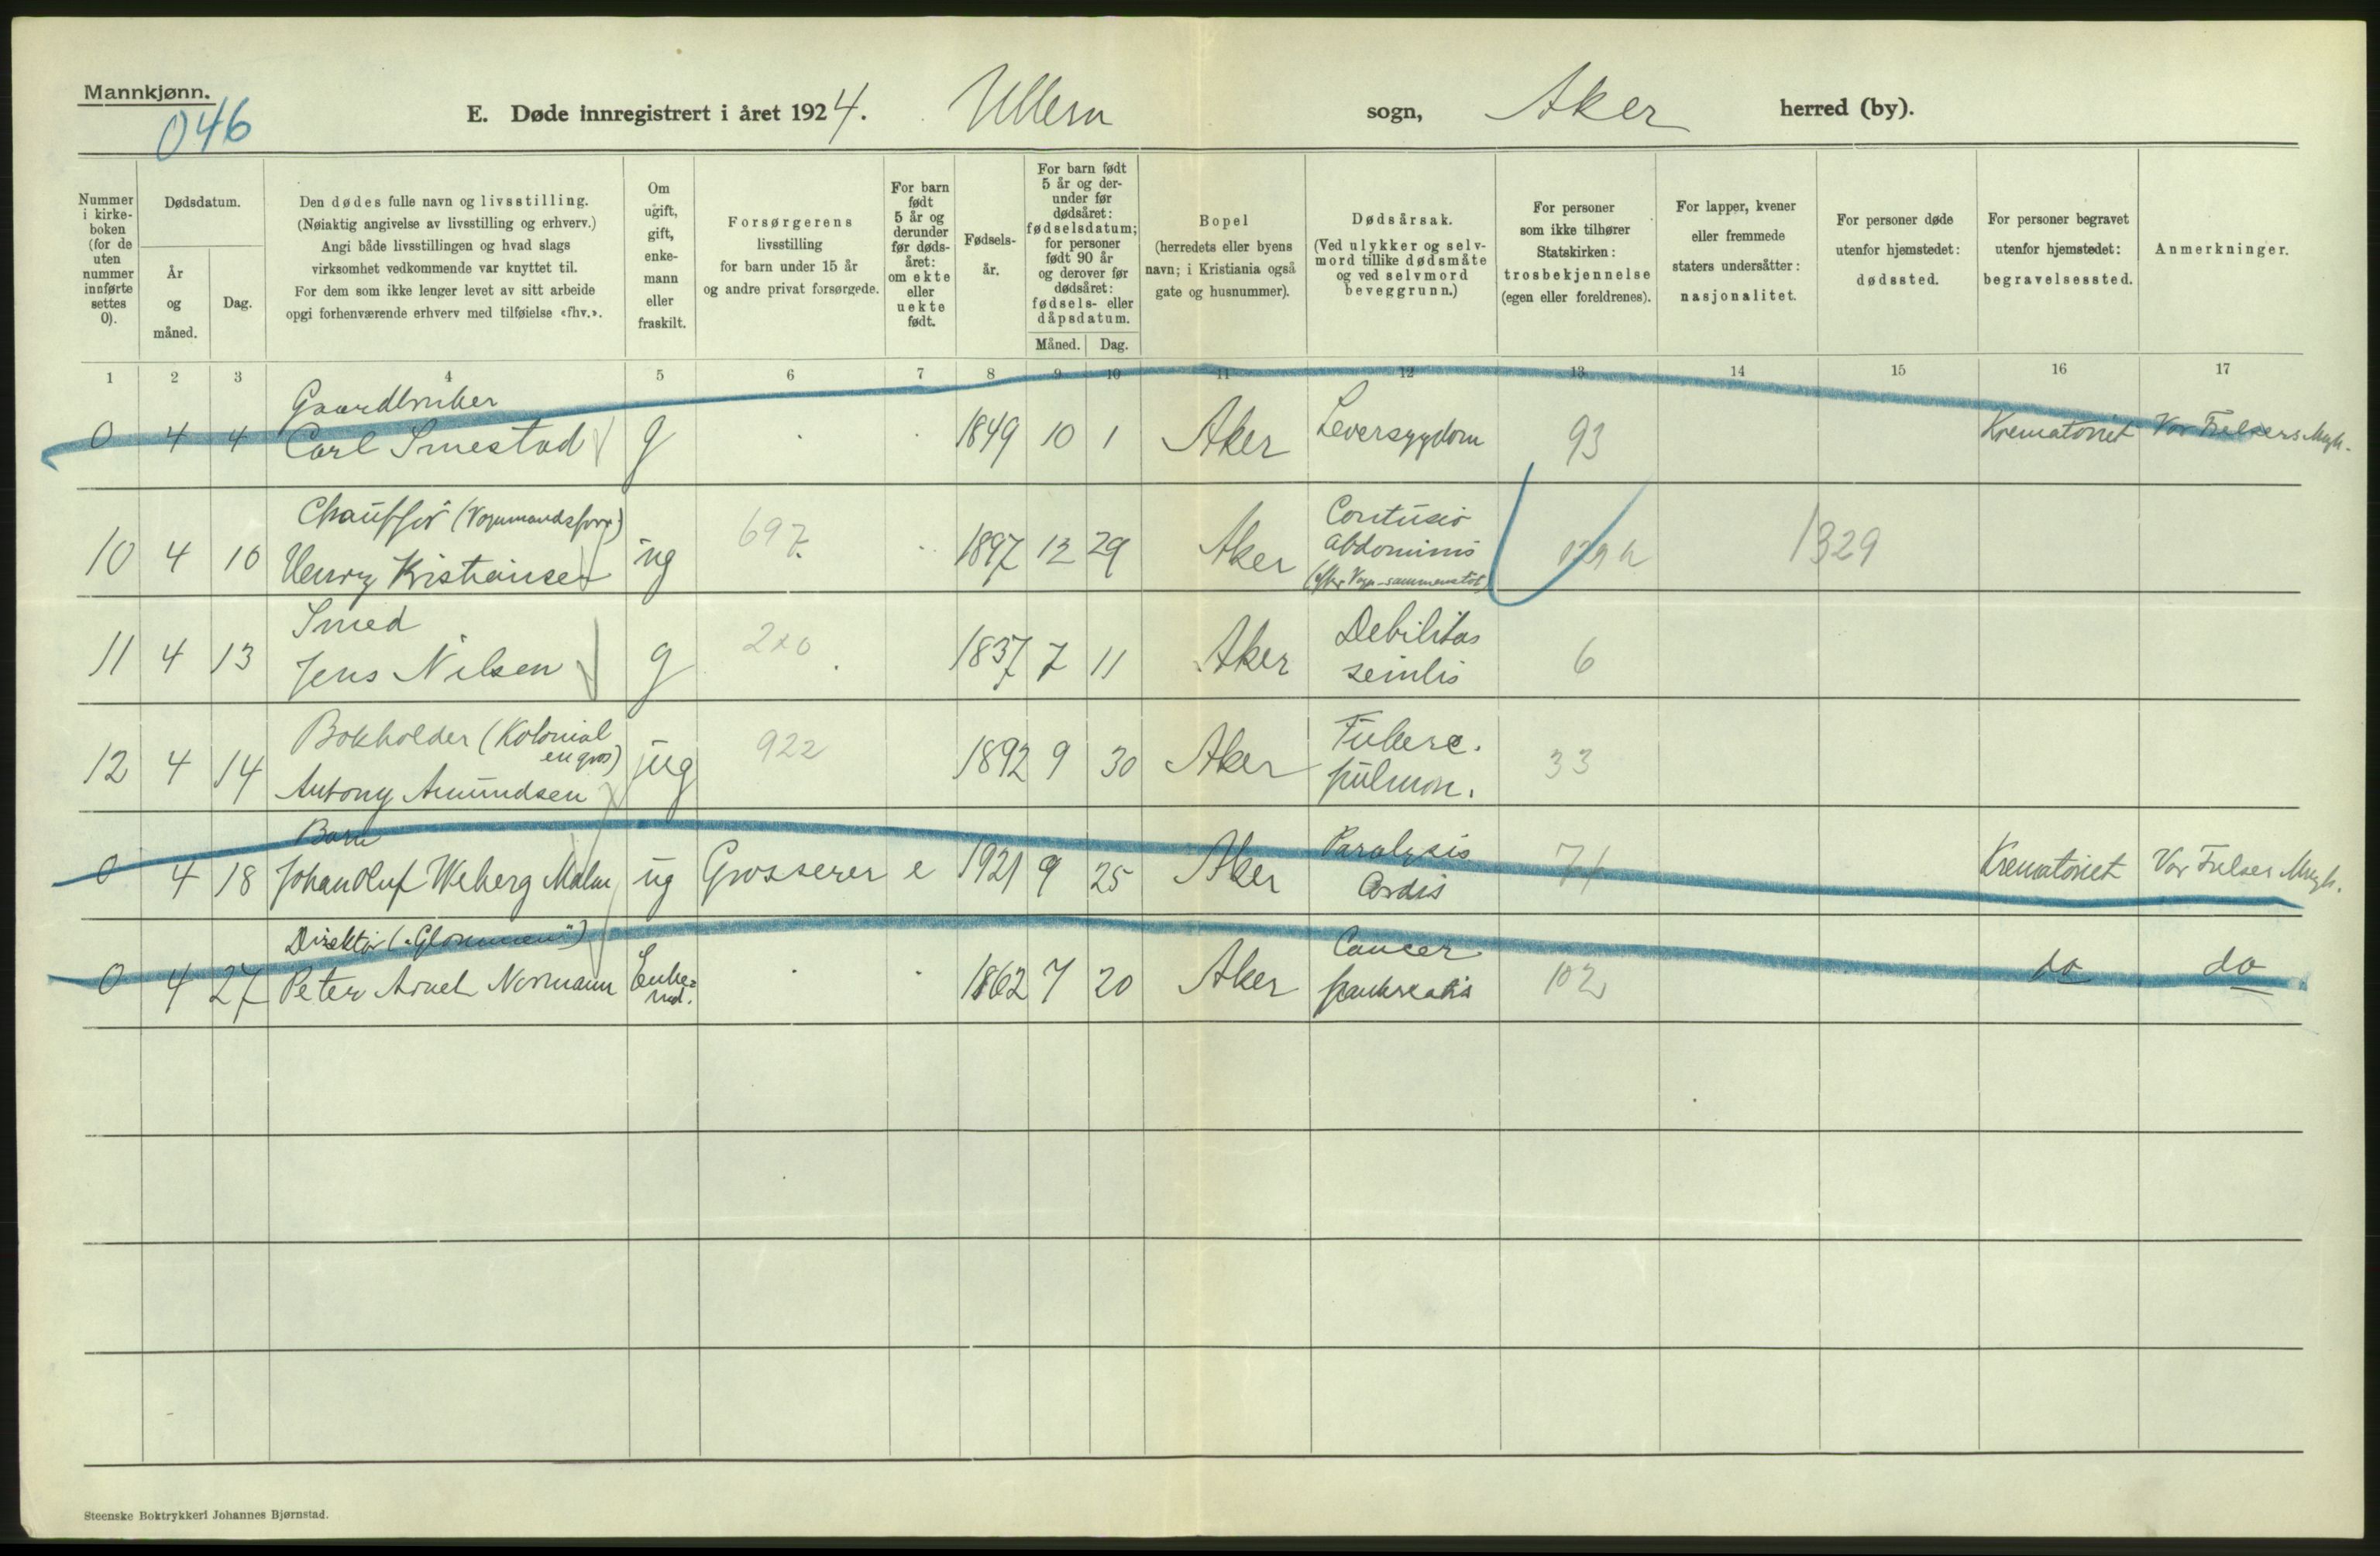 Mannkjønn.
046
E. Døde innregistrert i året 1924. Ullern sogn, Aker herred (by).
Nummer i kirke-boken (for de uten nummer innførte settes 0).
Dødsdatum.
År og måned.
Dag.
Den dødes fulle navn og livsstilling.
(Nøiaktig angivelse av livsstilling og erhverv.)
Angi både livsstillingen og hvad slags
virksomhet vedkommende var knyttet til.
For dem som ikke lenger levet av sitt arbeide
opgi forhenværende erhverv med tilføielse «fhv.».
Om ugift, gift, enke-mann eller fraskilt.
Forsørgerens
livsstilling
for barn under 15 år
og andre privat forsørgede.
For barn født 5 år og derunder før døds-året: om ekte eller uekte født.
Fødsels-år.
For barn født 5 år og der-under før dødsåret: fødselsdatum; for personer født 90 år og derover før dødsåret: fødsels- eller dåpsdatum.
Måned. Dag.
Bopel
(herredets eller byens
navn; i Kristiania også
gate og husnummer).
Dødsårsak.
(Ved ulykker og selv-
mord tillike dødsmåte
og ved selvmord
beveggrunn.)
For personer
som ikke tilhører
Statskirken:
trosbekjennelse
(egen eller foreldrenes).
For lapper, kvener
eller fremmede
staters undersåtter:
nasjonalitet.
For personer døde
utenfor hjemstedet:
dødssted.
For personer begravet
utenfor hjemstedet:
begravelsessted.
Anmerkninger.
1 2 3 4 5 6 7 8 9 10 11 12 13 14 15 16 17
Gaardbruker
0 4 4 Carl Smestad g 1849 10 1 Aker Leversygdom 93 Krematoriet Vor Frelsers Mngh.
Chauffør (Vognmandsforr)
10 4 10 Henry Kristiansen ug 697. 1897 12 29 Aker Contusio abdominis (efter Vogn-sammenstøt) 129 h 1329
Smed
11 4 13 Jens Nilsen g 220 1837 7 11 Aker Debilitas senilis 6
Bokholder (Kolonial en gros)
12 4 14 Antony Amundsen ug 922 1892 9 30 Aker Tuberc. pulmon. 33
Barn
0 4 18 Johan Oluf Weberg Malm ug Grosserer e 1921 9 25 Aker Paralysis Cordis 74 Krematoriet Vor Frelser Mngh.
Direktør ("Glommen")
0 4 27 Peter Arnet Normann Enke=md. 1862 7 20 Aker Cancer pankreatis 102 do do
Steenske Boktrykkeri Johannes Bjørnstad.